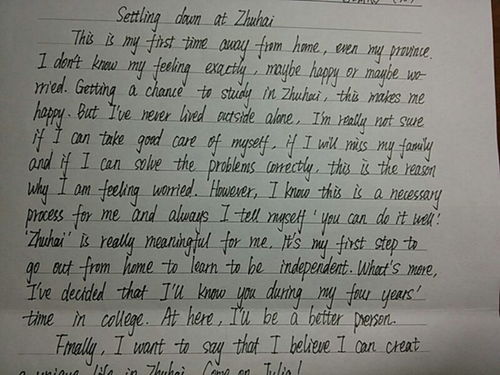 Settling down at Zhuhai
This is my first time away from home, even my province.
I don't know my feeling exactly, maybe happy or maybe wo-
rried. Getting a chance to study in Zhuhai, this makes me
happy. But I've never lived outside alone, I'm really not sure
if I can take good care of myself, if I will miss my family
and if I can solve the problems correctly, this is the reason
why I am feeling worried. However, I know this is a necessary
process for me and always I tell myself 'you can do it well!'
'Zhuhai' is really meaningful for me. It's my first step to
go out from home to learn to be independent. What's more,
I've decided that I'll know you during my four years'
time in college. At here, I'll be a better preson.
Finally, I want to say that I believe I can creat
a unique life in Zhuhai. Come on Julia!